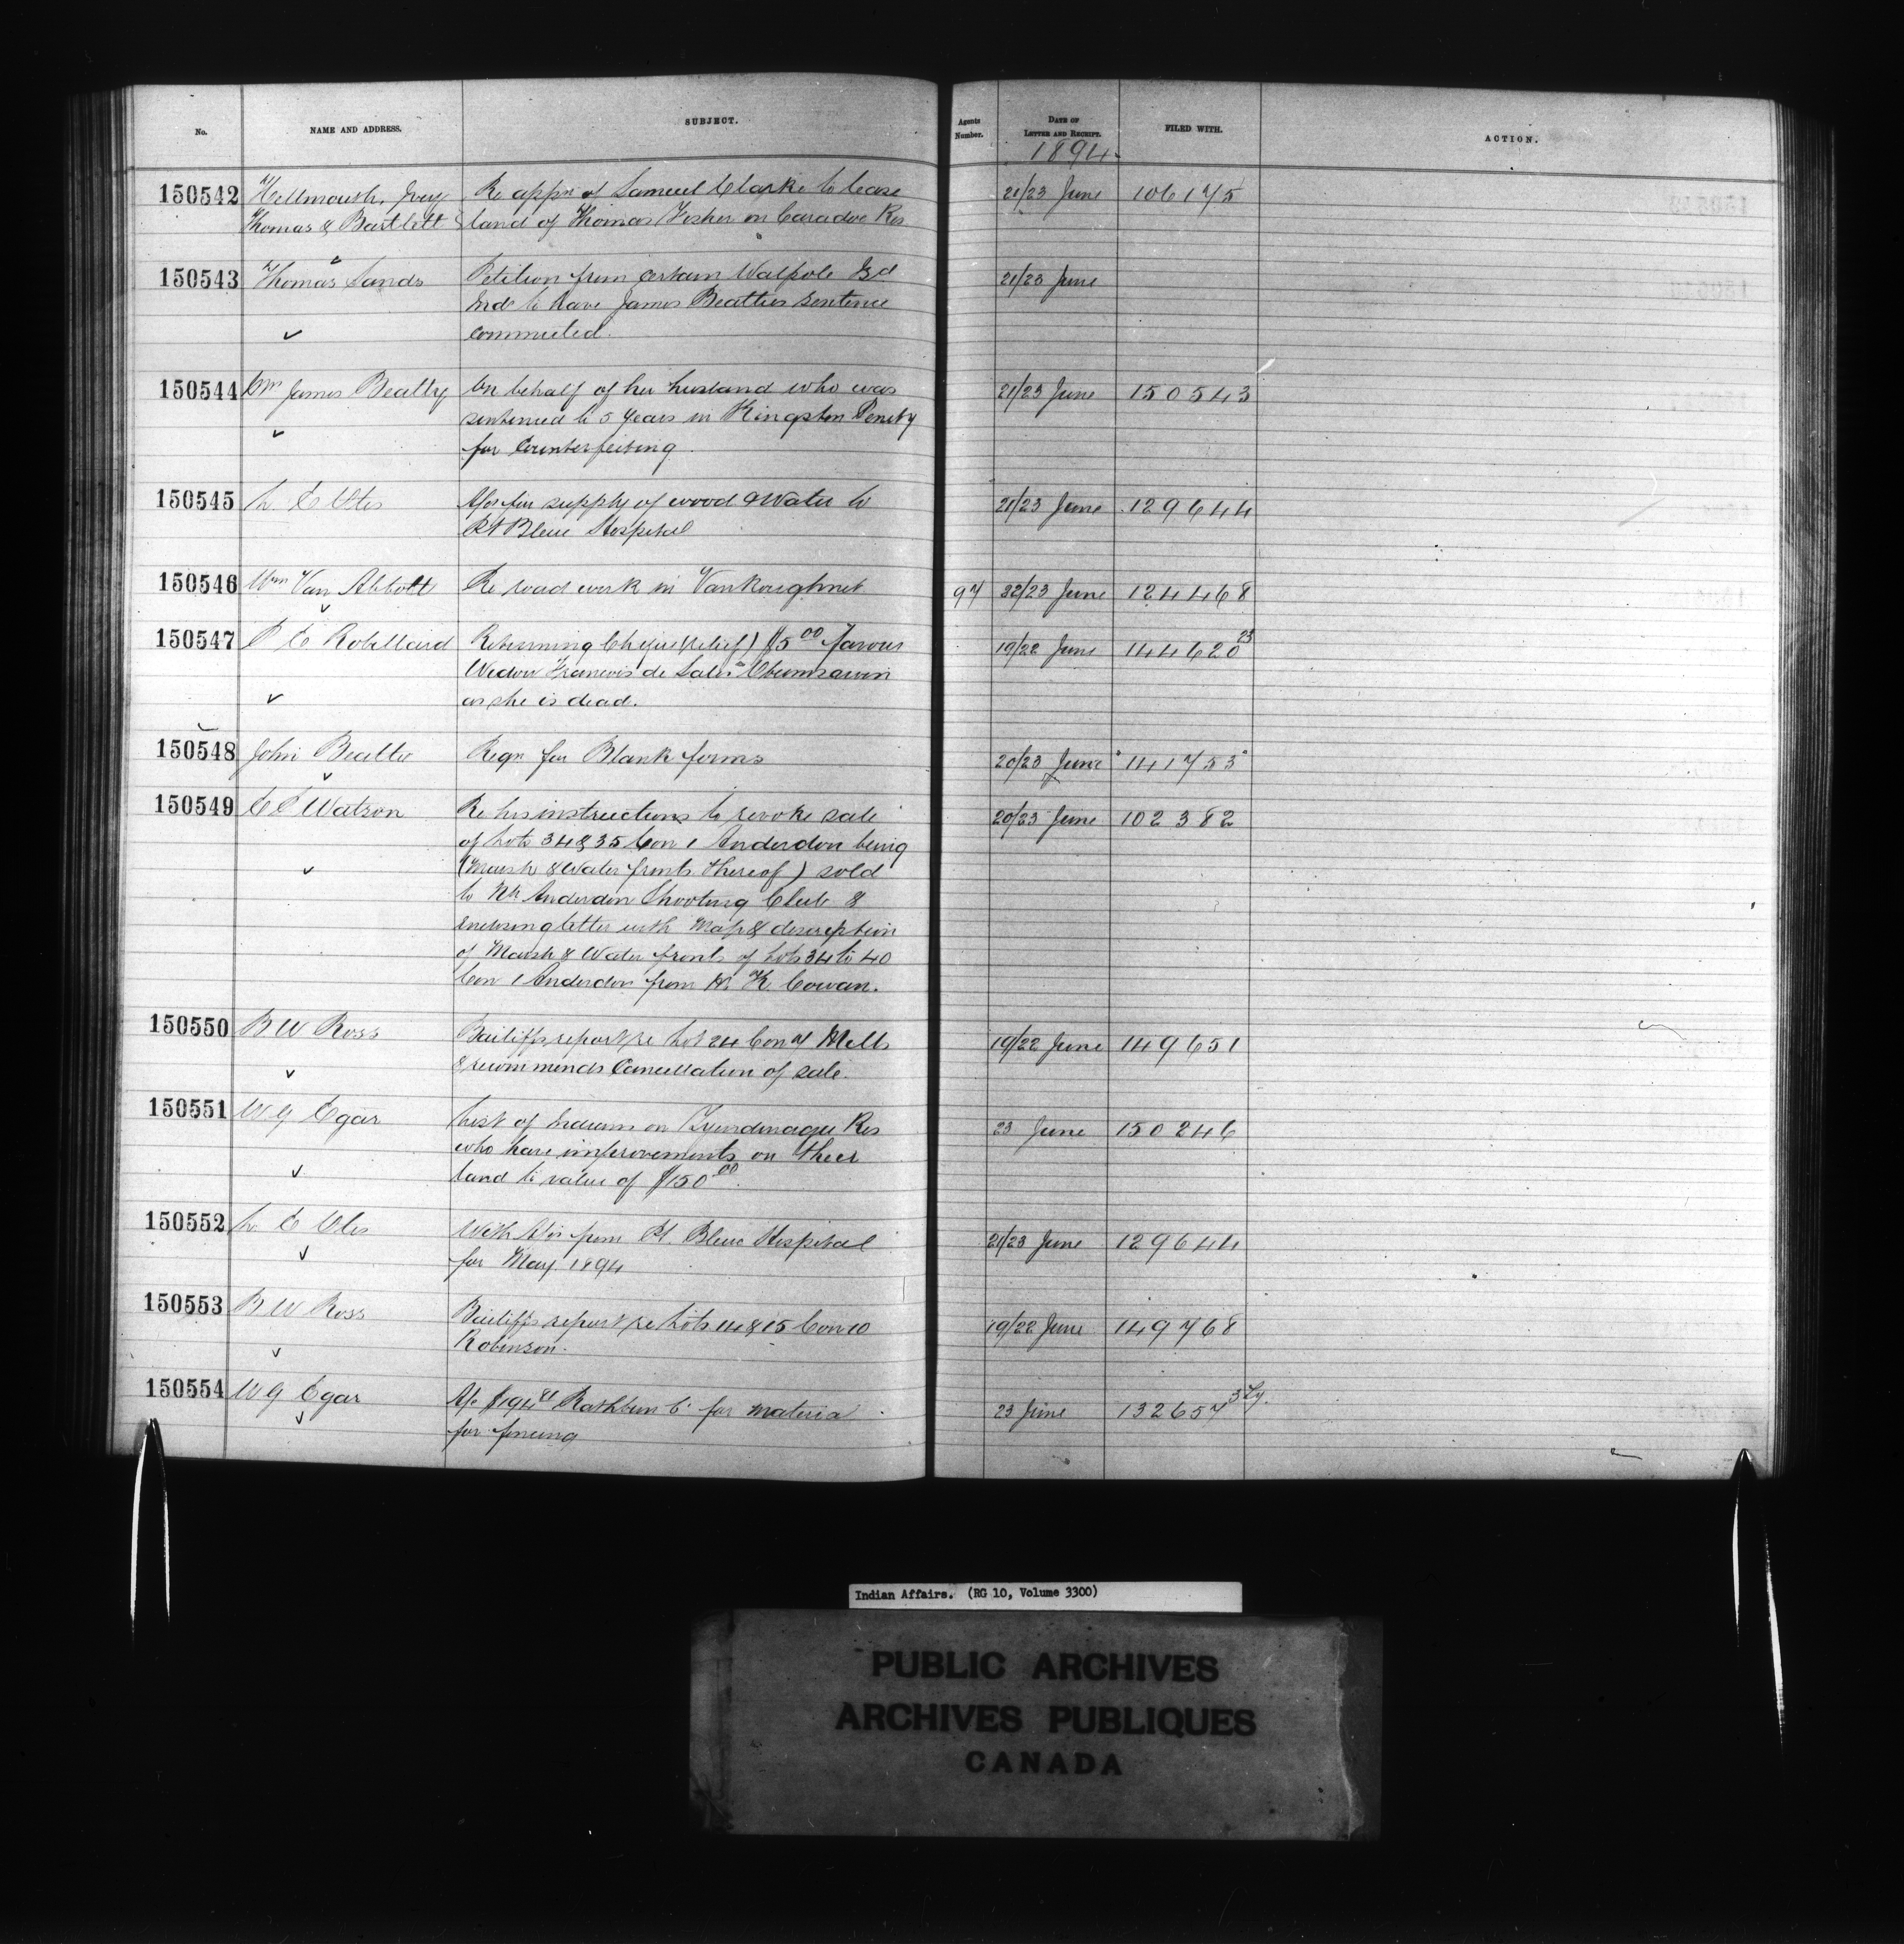 No. NAME AND ADDRESS. SUBJECT. Agents Number. DATE OF LETTER AND RECEIPT. FILED WITH. ACTION.
1894
150542 Hellmouth, Ivey Re appn of Samuel Clarke to lease 21/23 June 106175
Thomas & Bartlett land of Thomas Fisher on Caradoc Res
150543 Thomas Sands Petition from certain Walpole Isd 21/23 June
Inds to have James Beatties sentence
commuted.
150544 James Beatty On behalf of her husband who was 21/23 June 150543
sentenced to 5 years in Kingston Penity
for Counterfeiting
150545 L. E Otis for supply of wood & Water to 21/23 June 129644
Pt Bleue Hospital
150546 Wm Van Abbott Re road work in Vankoughnet 97 22/23 June 124468
150547 P E Robillard Returning Cheque (relief) $5 00 favour 19/22 June 144620 23
Widow Francois de Sales Obumsawin
as she is dead.
150548 John Beattie Reqn for Blank forms 20/23 June 141753
150549 C E Watson Re his instructions to revoke sale 20/23 June 102382
of Lots 34 & 35 Con 1 Anderdon being
(Marsh & Water fronts thereof) sold
to Anderdon Shooting Club &
enclosing letter with Map & description
of Marsh & Water fronts of Lots 34 to 40
Con 1 Anderdon from K. Cowan.
150550 B W Ross Bailiffs report re Lot 24 Con Mells 19/22 June 149651
& recommends Cancellation of sale.
150551 W G Egar List of Indians on Tyendinaga Res 23 June 150246
who have improvements on their
land to value of $150 00.
150552 L. E Otis With from Pt. Bleue Hospital 21/23 June 129644
for May 1894
150553 B W Ross Bailiffs report re Lots 14 & 15 Con 10 19/22 June 149768
Robinson.
150554 W G Egar $194 Rathbun Co for material 23 June 132657
for fencing
Indian Affairs. (RG 10, Volume 3300)
PUBLIC ARCHIVES
ARCHIVES PUBLIQUES
CANADA